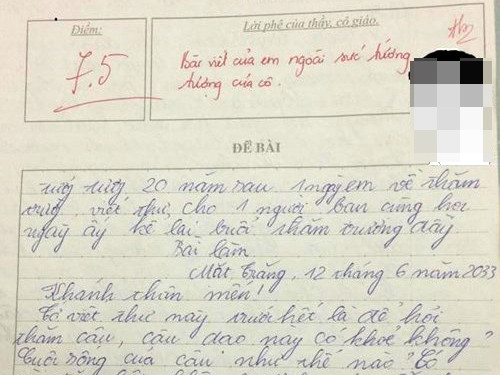 Điểm:
Lời phê của thầy, cô giáo.
7.5
Bài viết của em ngoài sức tưởng
tượng của cô.
ĐỀ BÀI
tưởng tượng 20 năm sau 1 ngày em về thăm
trường viết thư cho 1 người bạn cùng học
ngày ấy kể lại buổi thăm trường đầy
Bài làm
Mặt Trăng, 12 tháng 6 năm 2033
Khánh thân mến!
Tớ viết thư này trước hết là để hỏi
thăm cậu, cậu dạo này có khoẻ không
Cuộc sống của cậu như thế nào? Có